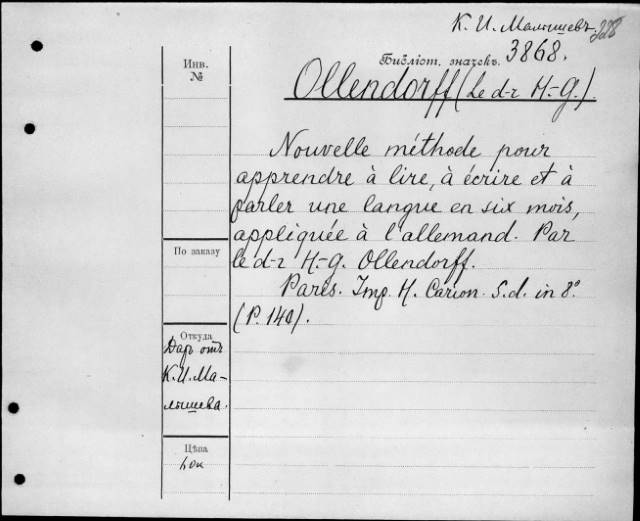 К. И. Малышевъ 328
Библіот. значекъ. 3868.
Ollendorff (Le d-r H.-G.).
Nouvelle méthode pour
apprendre à lire, à écrire et à
parler une langue en six mois,
appliquée à l'allemand. Par
le d-r H.-G. Ollendorff.
Pares. Imp. H. Carion. S.d. in 8°
(P. 140).
Инв.
№
По заказу
Откуда
Даръ отъ
К. И. Ма-
лышева.
Цѣна